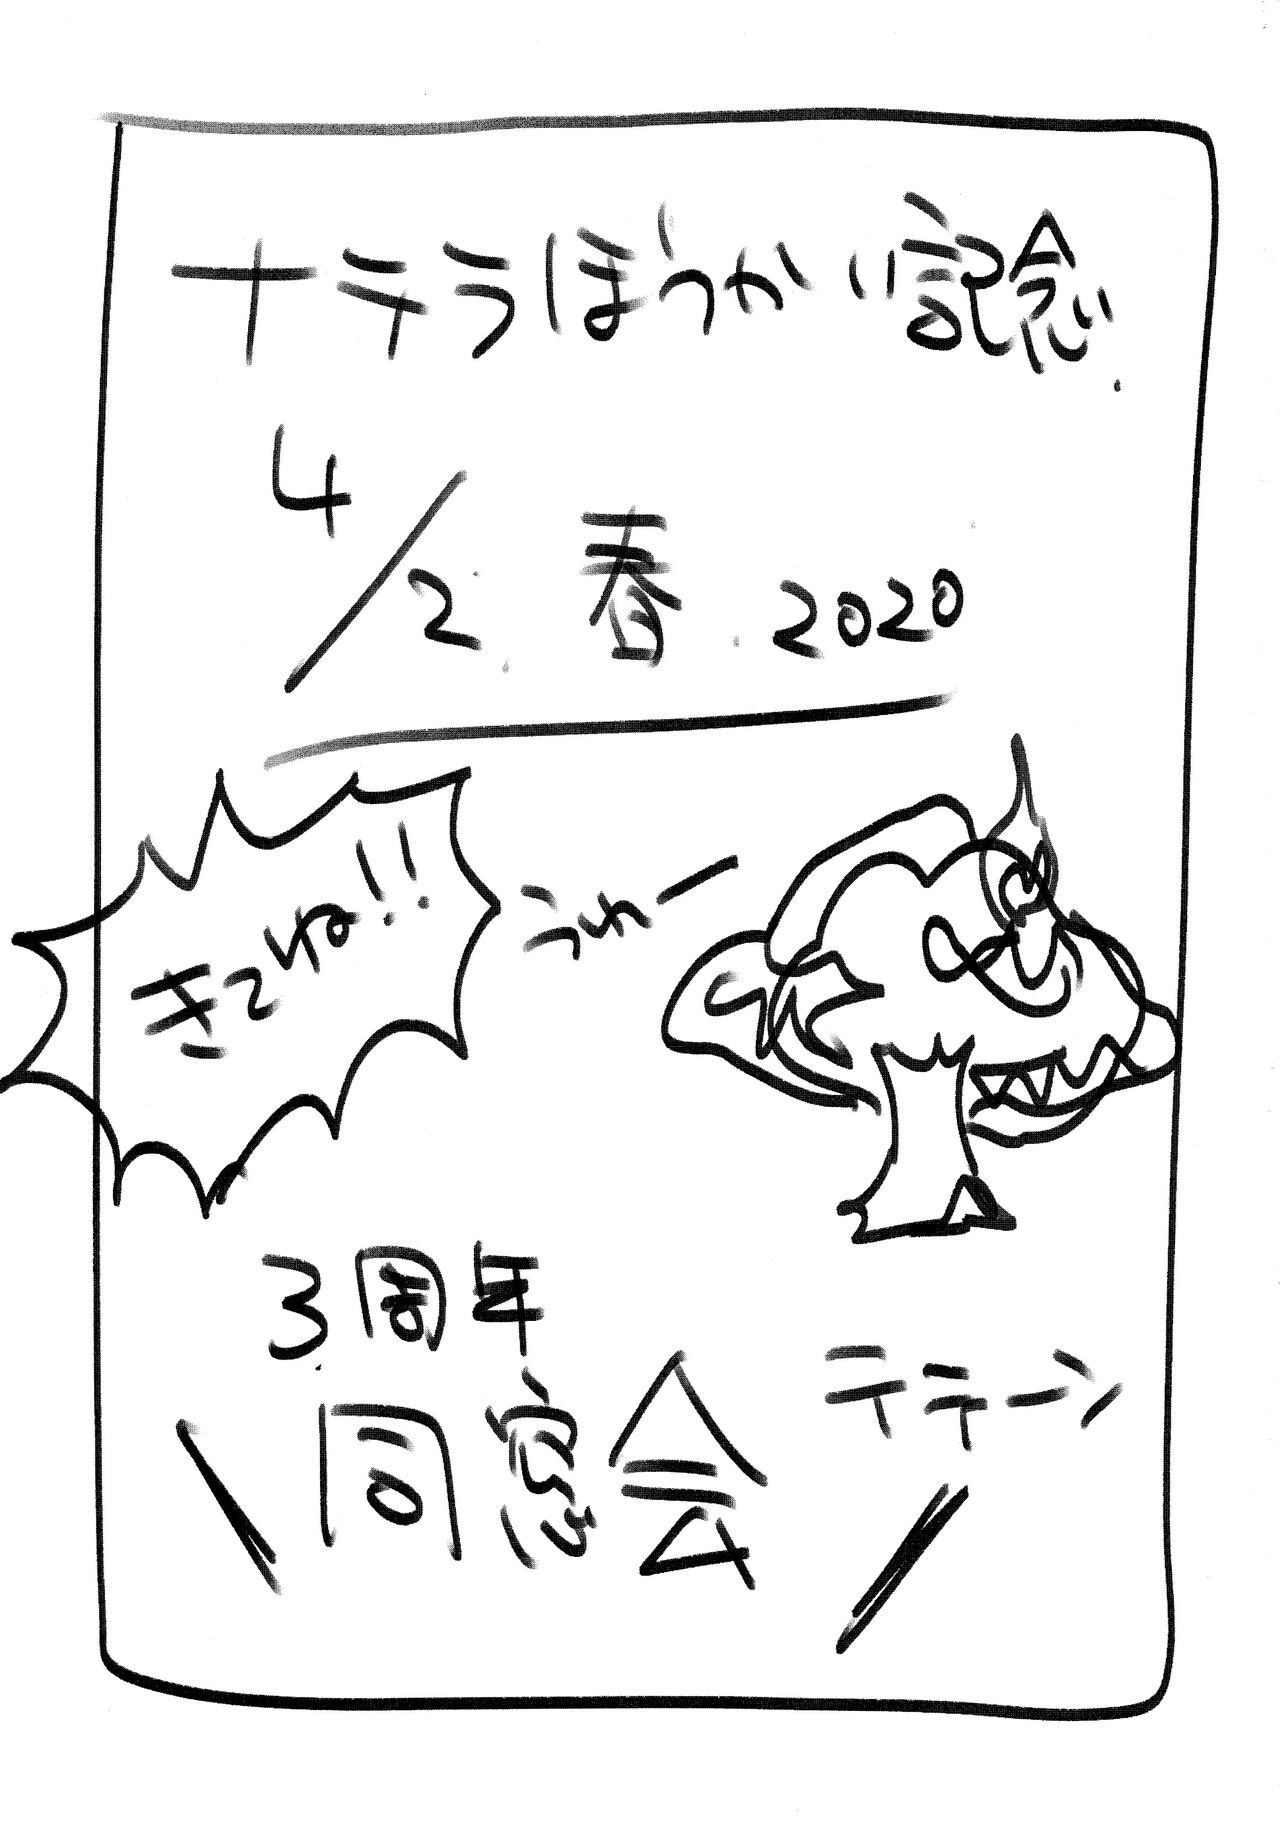 十テラほうかい記念
4/2 春 2020
きてね!!
うれー
3周年
同窓会
テテーン